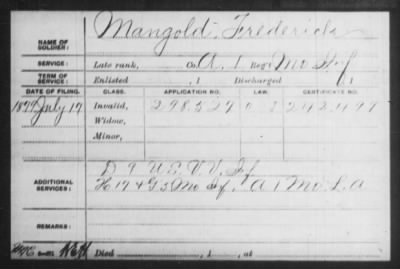 NAME OF SOLDIER: Mangold, Frederick
SERVICE: Late rank, Co. A, 1 Reg't Mo Inf
TERM OF SERVICE: Enlisted , 1 Discharged , 1
DATE OF FILING. CLASS. APPLICATION NO. LAW. CERTIFICATE NO.
1879 July 17 Invalid, 298.527 242.497
Widow,
Minor,
ADDITIONAL SERVICES: D 9 U.S.V.V. Inf
H 17 & G 5 Mo Inf. A 1 Mo. L. A
REMARKS:
Died , 1 , at